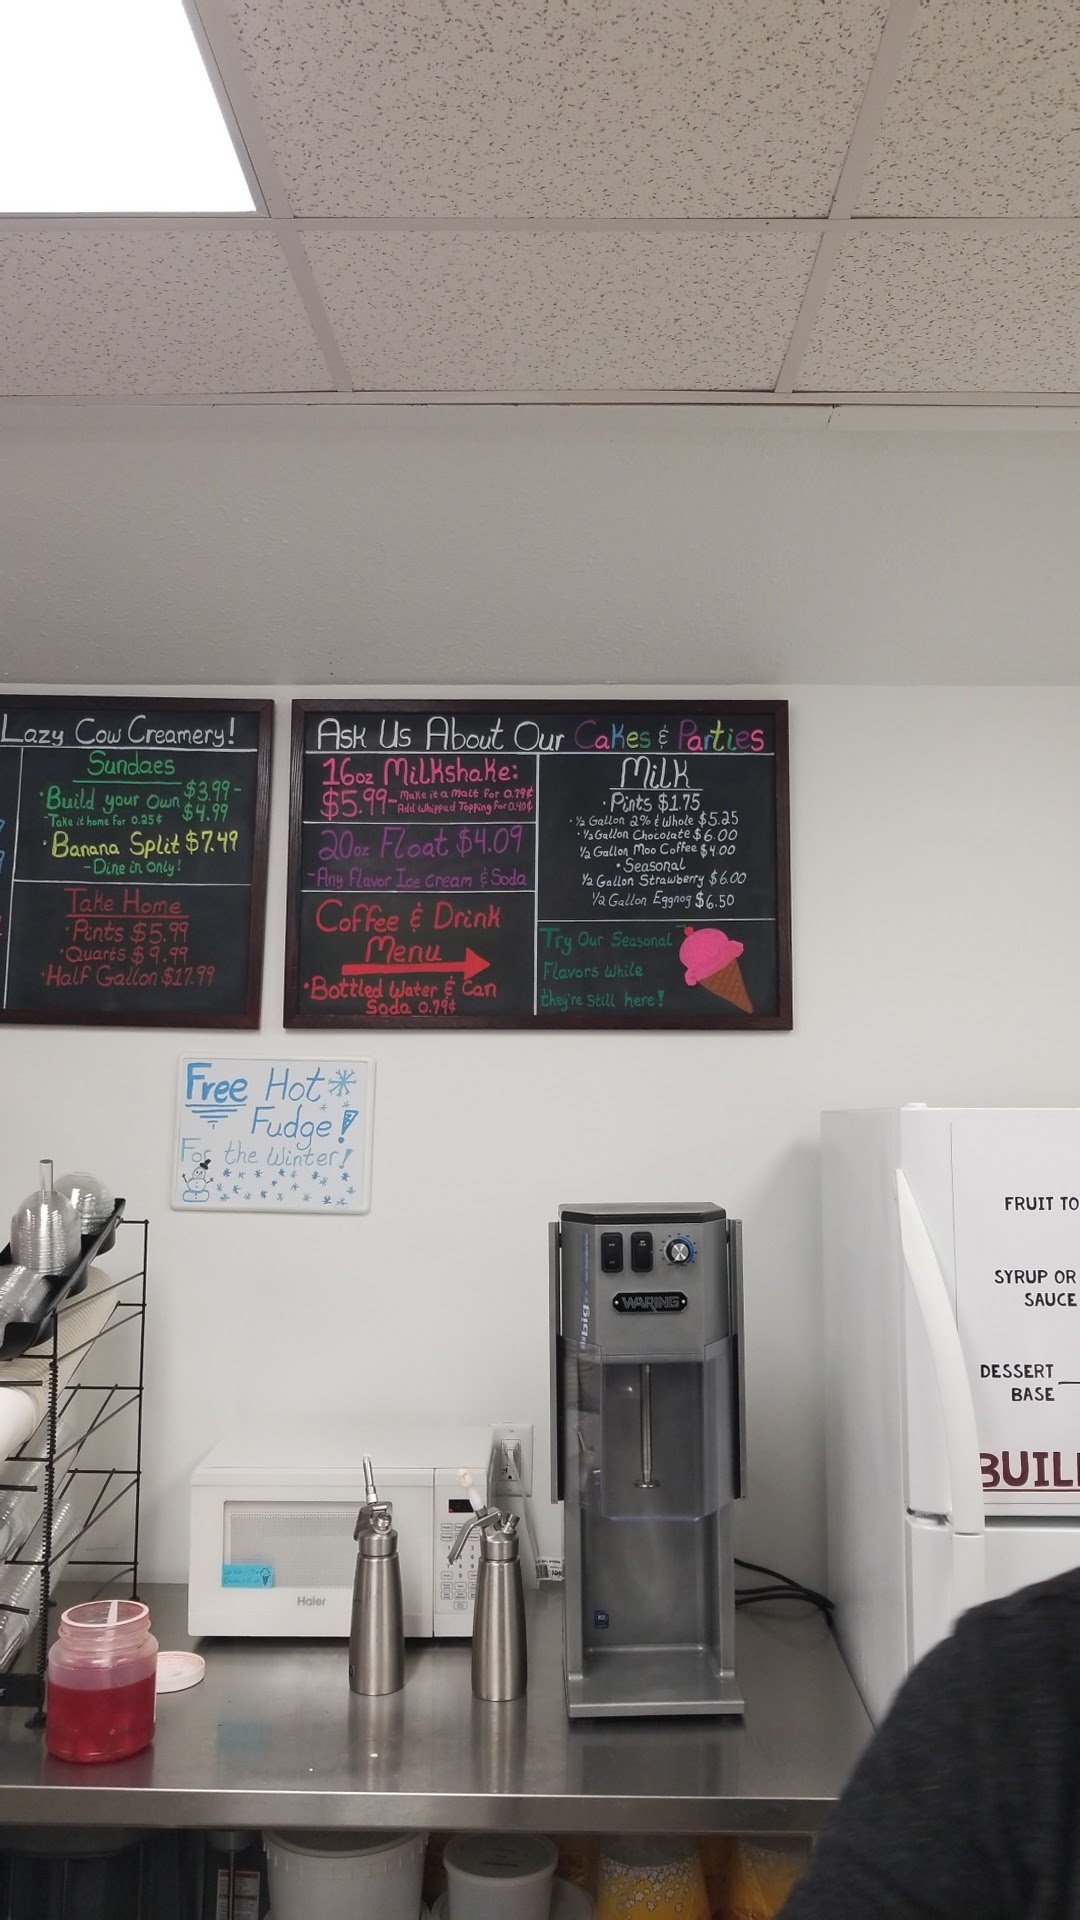 Lazy Cow Creamery!
Sundaes
·Build your own $3.99 -
-Take it home for 0.25¢ $4.99
·Banana Split $7.49
-Dine in only!
Take Home
·Pints $5.99
·Quarts $9.99
·Half Gallon $17.99
Ask Us About Our Cakes & Parties
16oz Milkshake:
$5.99- Make it a malt for 0.79¢
Add Whipped Topping for 0.40¢
20oz Float $4.09
-Any Flavor Ice Cream & Soda
Coffee & Drink
Menu
·Bottled Water & Can
Soda 0.79¢
Milk
·Pints $1.75
·½ Gallon 2% & Whole $5.25
·½ Gallon Chocolate $6.00
½ Gallon Moo Coffee $4.00
·Seasonal
½ Gallon Strawberry $6.00
½ Gallon Eggnog $6.50
Try Our Seasonal
Flavors While
they're still here!
Free Hot
Fudge!
For the Winter!
WARING
Haier
FRUIT TO
SYRUP OR
SAUCE
DESSERT
BASE
BUIL